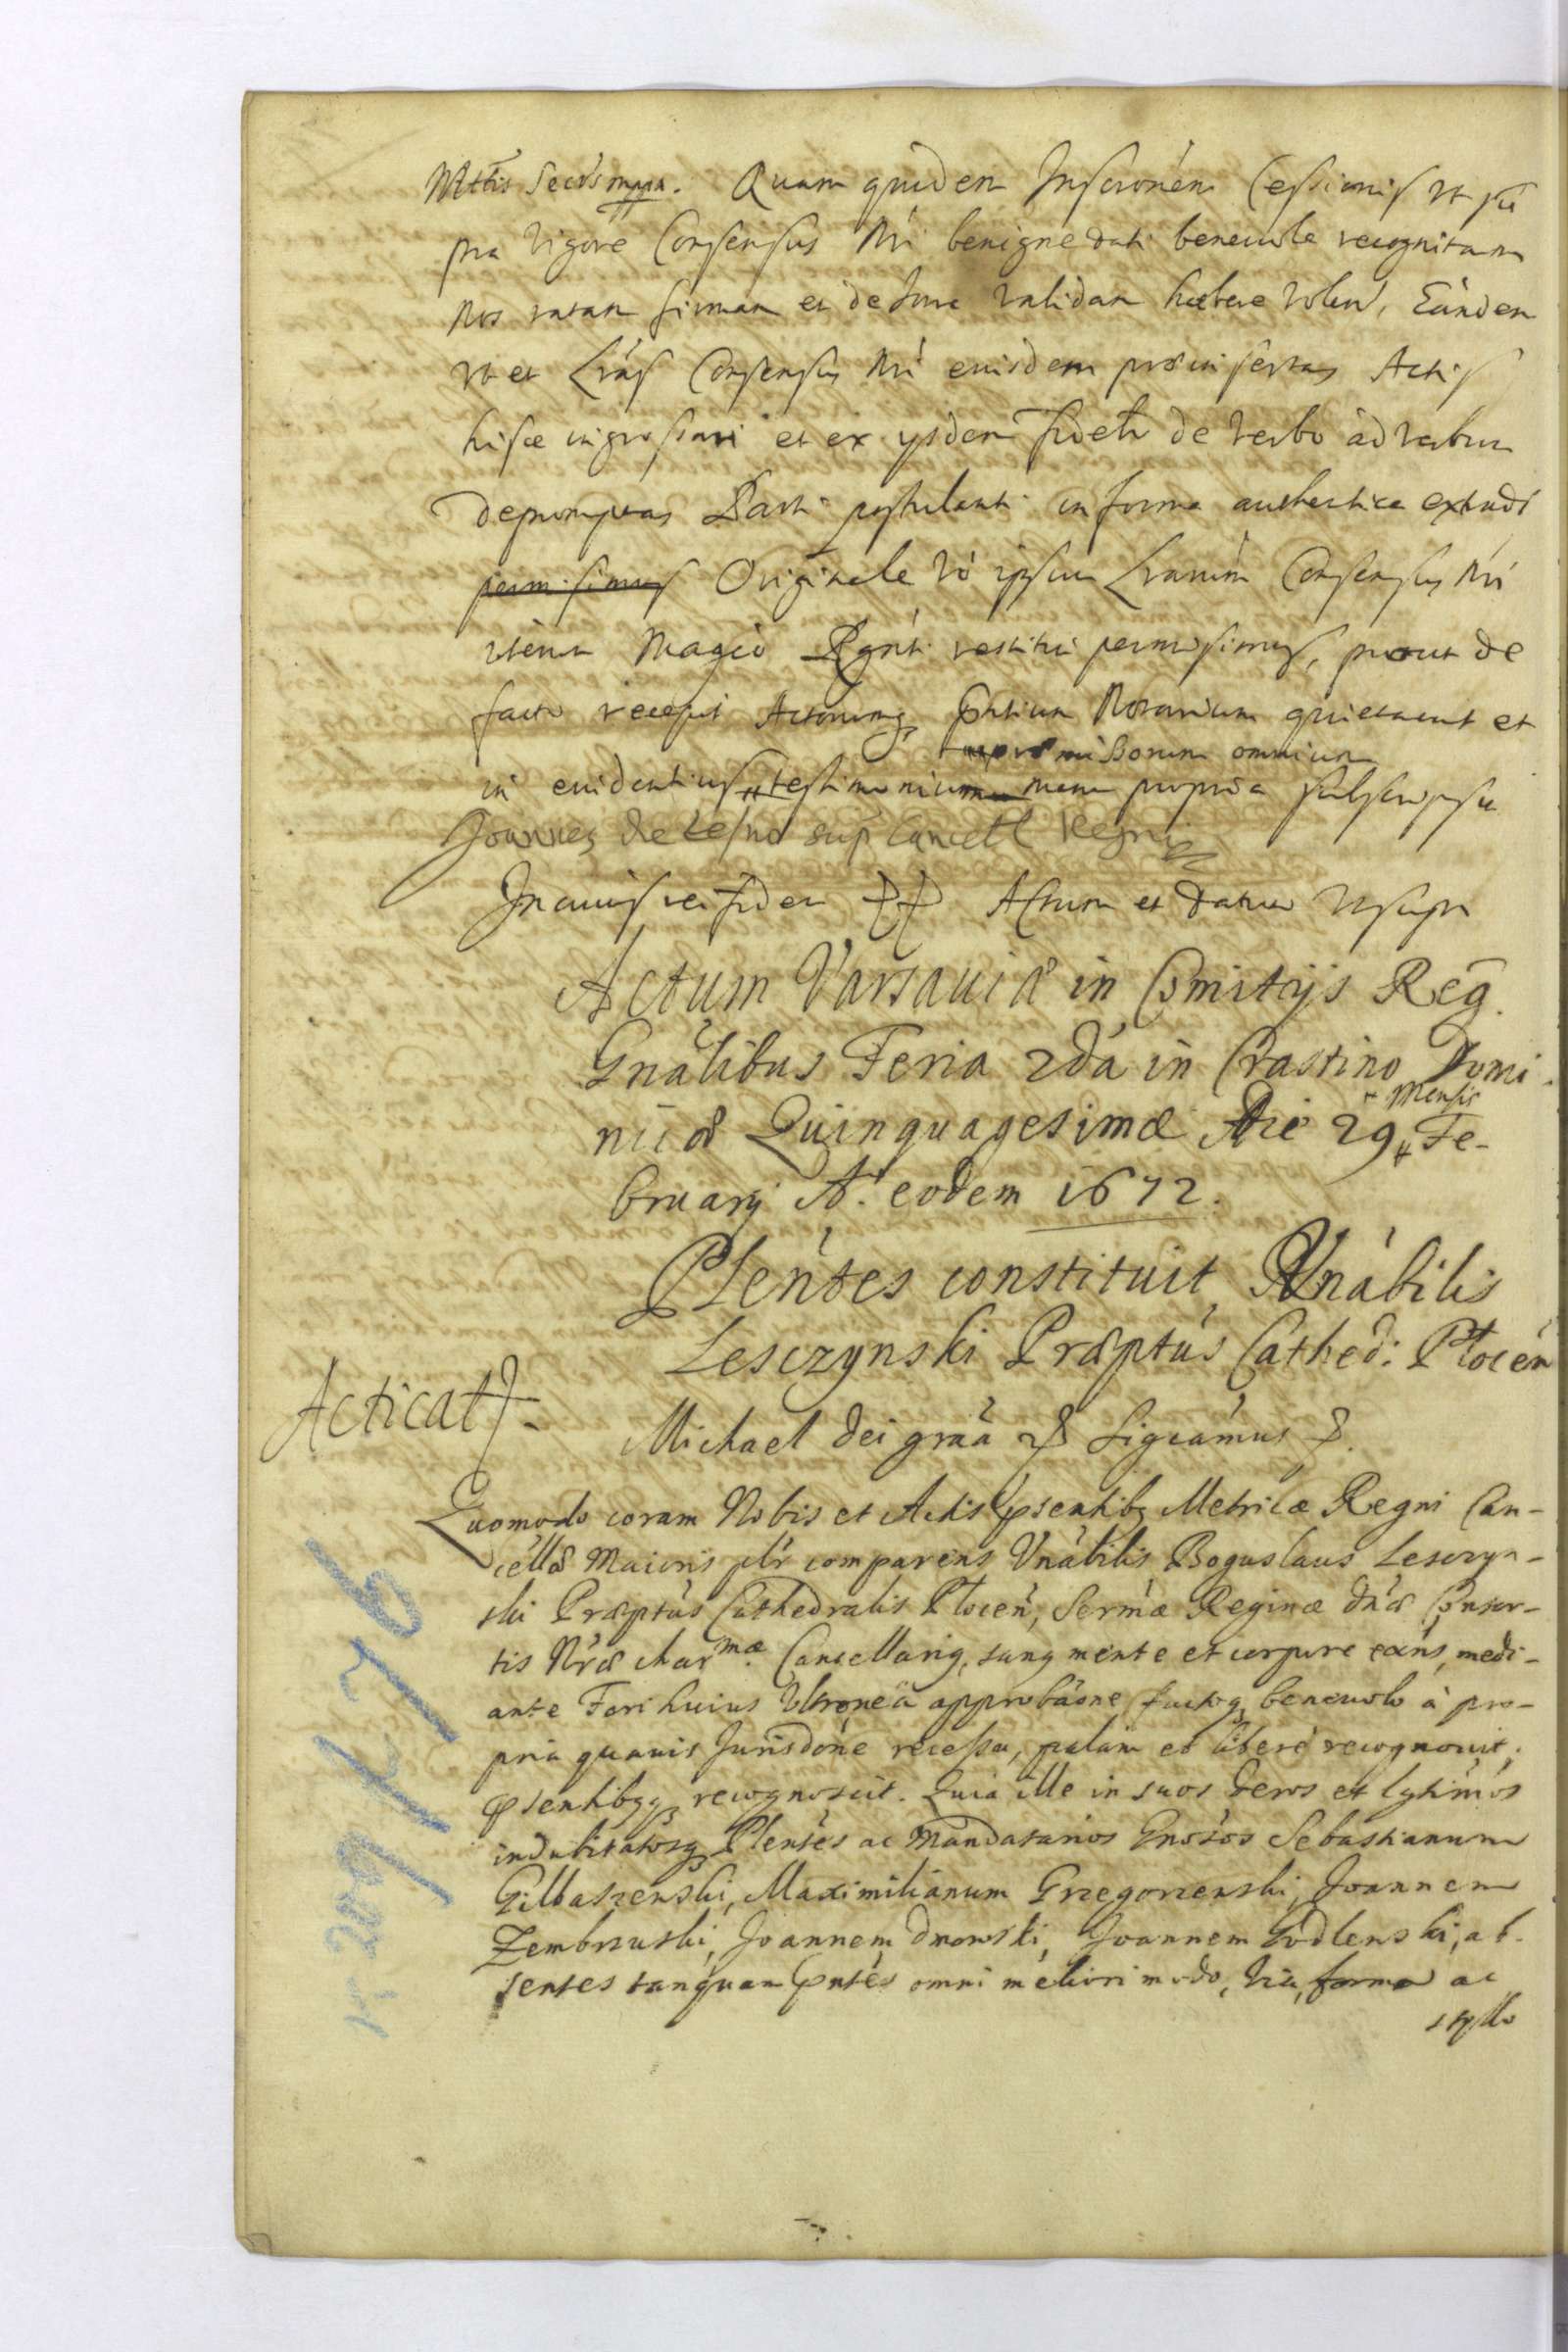 Mttis Secrs mppa. Quam quidem Inscronem Cessionis ut su
pra vigore Consensus Nri benigne dati benevole recognitam
Nos ratam firmam et de Jure validam habere volen, Eandem
ut et Lras Consensus Nri eiusdem præinsertas Actis
hisce ingrossari et ex ysdem fidelr de verbo ad verbum
depromptas Parti postulanti in forma authentica extradi
permisimus Originale vo ipsum Lrarum Consensus Nri
itidem Magco Rgnti restitui permisimus, prout de
facto recepit Actorumq pntium Notarium quietavit et
præmissorum omnium
in evidentius testimonium manu propria subscripsit
Joannes de Lesno sup Cancell Regni
In cuius rei fidem Actum et datum ut supra
Actum Varsaviæ in Comitijs Reg.
Gnalibus Feria 2da in Crastino Domi
nicæ Quinquagesimæ Die 29 Mensis Fe-
bruarij A. eodem 1672.
Plentes constituit Vnabilis
Lesczynski Præptus Cathed: Plocen
Acticat
Michael dei graa Sigcamus
Quomodo coram Nobis et Actis psentibq Metricæ Regni Can-
cellæ Maioris plr comparens Vnabilis Boguslaus Lesczyn-
ski Præptus Cathedralis Plocen, Sermæ Reginæ dnæ Consor-
tis Nræ charmæ Cancellarig, sang mente et corpore exns, medi-
ante Fori huius Vltronea approbaone factoq benevolo à pro-
pria quavis Jurisdone recessu, palam et libere recognovit,
psentibqq recognoscit. Quia ille in suos veros et lgtimos
indubitatosq Plentes ac Mandatarios Gnosos Sebastianum
Gilbaszewski, Maximilianum Grzegorzewski, Joannem
Zembrzuski, Joannem Dmowski, Joannem Godlewski, ab
sentes tanquam pntes omni meliori modo, via, forma ac
stylo
K 209 K 76